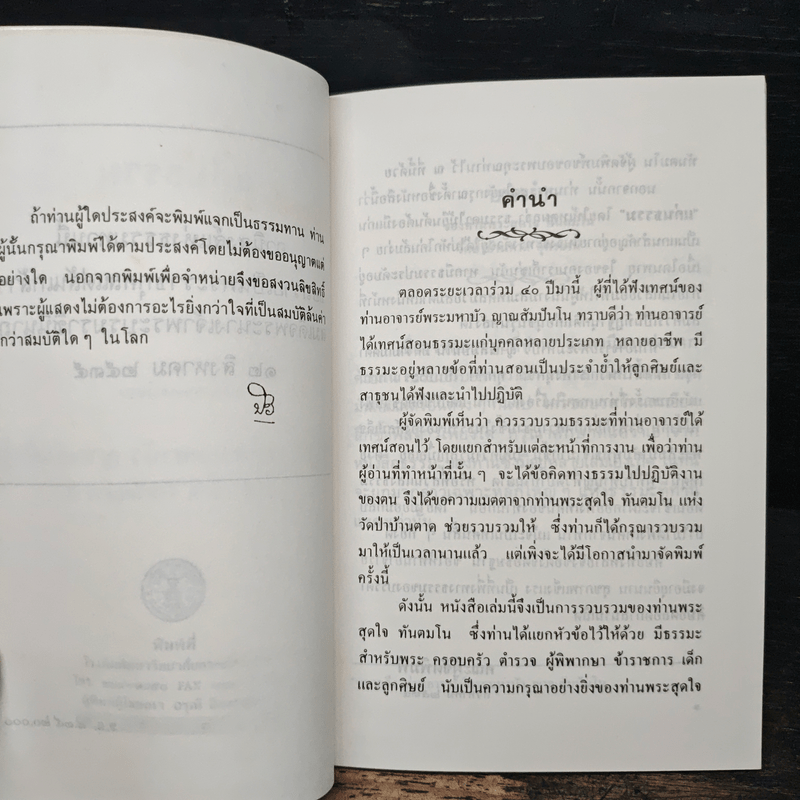 ถ้าท่านผู้ใดประสงค์จะพิมพ์แจกเป็นธรรมทาน ท่าน
ผู้นั้นกรุณาพิมพ์ได้ตามประสงค์โดยไม่ต้องขออนุญาตแต่
อย่างใด นอกจากพิมพ์เพื่อจำหน่ายจึงขอสงวนลิขสิทธิ์
เพราะผู้แสดงไม่ต้องการอะไรยิ่งกว่าใจที่เป็นสมบัติล้นค่า
กว่าสมบัติใด ๆ ในโลก
คำนำ
ตลอดระยะเวลาร่วม ๔๐ ปีมานี้ ผู้ที่ได้ฟังเทศน์ของ
ท่านอาจารย์พระมหาบัว ญาณสัมปันโน ทราบดีว่า ท่านอาจารย์
ได้เทศน์สอนธรรมะแก่บุคคลหลายประเภท หลายอาชีพ มี
ธรรมะอยู่หลายข้อที่ท่านสอนเป็นประจำย้ำให้ลูกศิษย์และ
สาธุชนได้ฟังและนำไปปฏิบัติ
ผู้จัดพิมพ์เห็นว่า ควรรวบรวมธรรมะที่ท่านอาจารย์ได้
เทศน์สอนไว้ โดยแยกสำหรับแต่ละหน้าที่การงาน เพื่อว่าท่าน
ผู้อ่านที่ทำหน้าที่นั้น ๆ จะได้ข้อคิดทางธรรมไปปฏิบัติงาน
ของตน จึงได้ขอความเมตตาจากท่านพระสุดใจ ทันตมโน แห่ง
วัดป่าบ้านตาด ช่วยรวบรวมให้ ซึ่งท่านก็ได้กรุณารวบรวม
มาให้เป็นเวลานานแล้ว แต่เพิ่งจะได้มีโอกาสนำมาจัดพิมพ์
ครั้งนี้
ดังนั้น หนังสือเล่มนี้จึงเป็นการรวบรวมของท่านพระ
สุดใจ ทันตมโน ซึ่งท่านได้แยกหัวข้อไว้ให้ด้วย มีธรรมะ
สำหรับพระ ครอบครัว ตำรวจ ผู้พิพากษา ข้าราชการ เด็ก
และลูกศิษย์ นับเป็นความกรุณาอย่างยิ่งของท่านพระสุดใจ